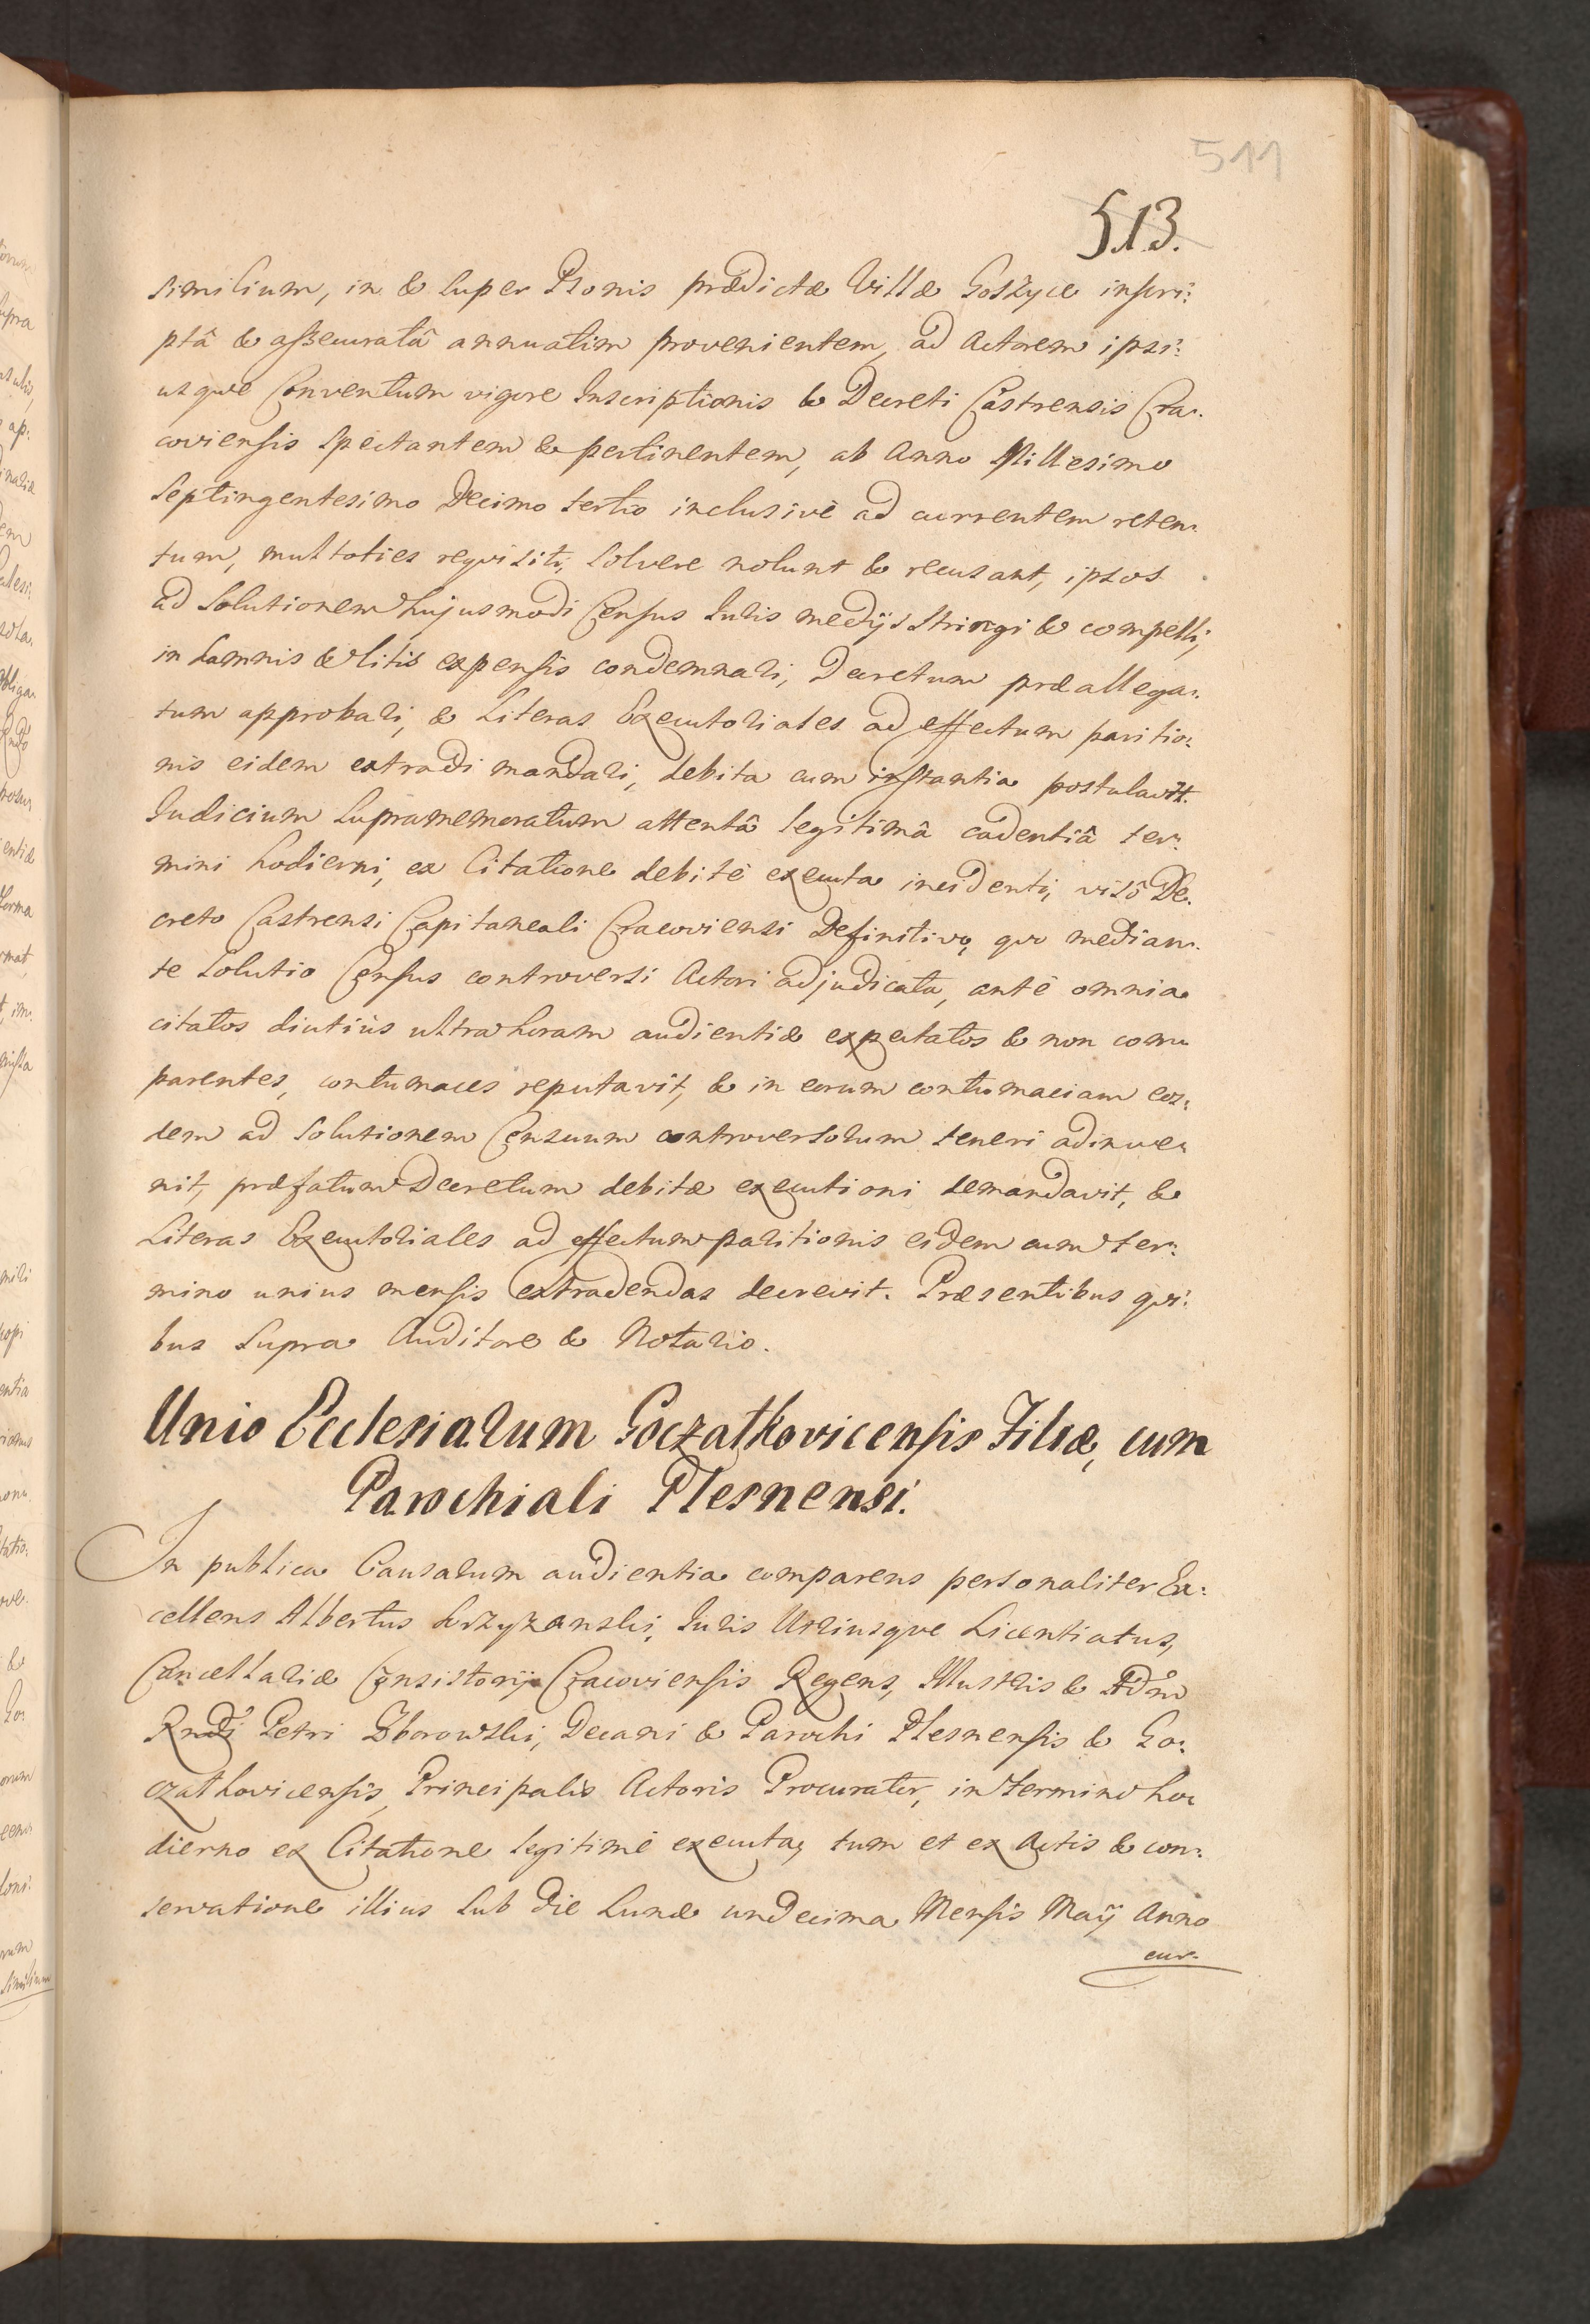 511
513.
similium, in & super Bonis prædictæ Villæ Goszyce inscri:
ptâ & assecuratâ annuatim provenientem, ad Actorem ipsi:
usque Conventum vigore Inscriptionis & Decreti Castrensis Cra:
coviensis spectantem & pertinentem, ab Anno Millesimo
Septingentesimo Decimo tertio inclusivè ad currentem reten:
tum, multoties requisiti, solvere nolunt & recusant, ipsos
ad solutionem hujusmodi Census Iuris medijs stringi & compelli,
in damnis & litis expensis condemnari, Decretum præallega:
tum approbari, & Literas Executoriales ad effectum paritio:
nis eidem extradi mandari, debita cum instantia postulavit.
Iudicium supramemoratum attentâ legitimâ cadentiâ ter:
mini hodierni, ex Citatione debitè executa incidenti, visô De:
creto Castrensi Capitaneali Cracoviensi Definitivo, quo median:
te solutio Census controversi Actori adjudicata, antè omnia
citatos diutiùs ultra horam audientiæ expectatos & non com:
parentes, contumaces reputavit, & in eorum contumaciam eos:
dem ad solutionem Censuum controversorum teneri adinve:
nit, præfatum Decretum debitæ executioni demandavit, &
Literas Executoriales ad effectum paritionis eidem cum ter:
mino unius mensis extradendas decrevit. Præsentibus qui:
bus supra Auditore & Notario.
Unio Ecclesiarum Goczalkovicensis Filiæ, cum
Parochiali Plesnensi.
In publica Causarum audientia comparens personaliter Ex:
cellens Albertus Krzyzanski, Iuris Utriusque Licentiatus,
Cancellariæ Consistorij Cracoviensis Regens, Illustris & Adm
Rndi Petri Zborowski, Decani & Parochi Plesnensis & Go:
czalkovicensis, Principalis Actoris Procurator, in termino ho:
dierno ex Citatione legitimè executa, tum et ex Actis & con:
servatione illius sub die Lunæ undecima Mensis Maij Anno
cur: